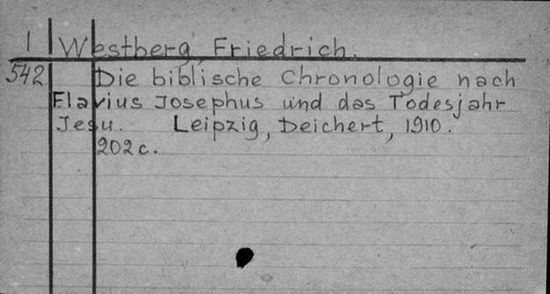 I Westberg, Friedrich.
542 Die biblische Chronologie nach
Flavius Josephus und das Todesjahr
Jesu. Leipzig, Deichert, 1910.
202 c.